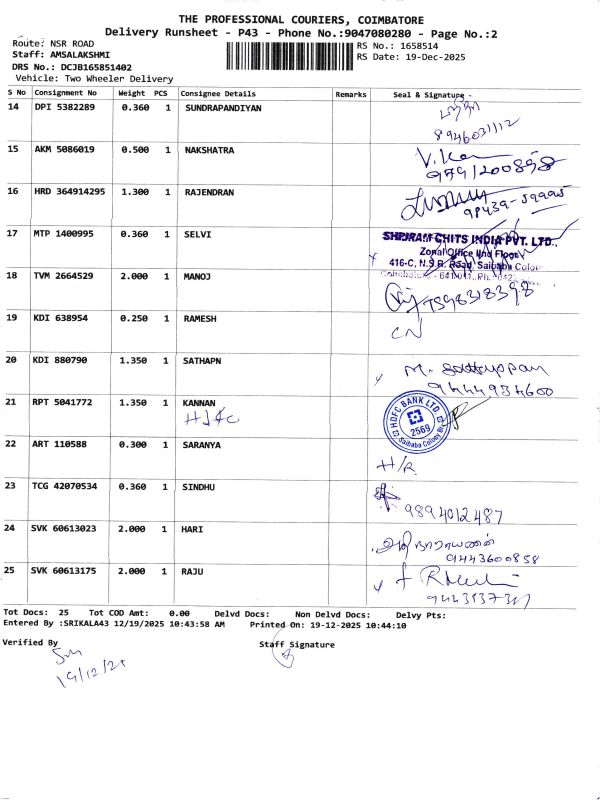 THE PROFESSIONAL COURIERS, COIMBATORE
Delivery Runsheet - P43 - Phone No.:9047080280 - Page No.:2
Route: NSR ROAD
Staff: AMSALAKSHMI
DRS No.: DCJB165851402
Vehicle: Two Wheeler Delivery
RS No.: 1658514
RS Date: 19-Dec-2025
S No Consignment No Weight PCS Consignee Details Remarks Seal & Signature
14 DPI 5382289 0.360 1 SUNDRAPANDIYAN
8946031112
15 AKM 5086019 0.500 1 NAKSHATRA
16 HRD 364914295 1.300 1 RAJENDRAN
17 MTP 1400995 0.360 1 SELVI
SHRIRAM CHITS INDIA PVT. LTD.,
Zonal Office IInd Floor
416-C, N.S.R. Road, Saibaba Colony
18 TVM 2664529 2.000 1 MANOJ
7598318398
19 KDI 638954 0.250 1 RAMESH
CN
20 KDI 880790 1.350 1 SATHAPN
9444934600
21 RPT 5041772 1.350 1 KANNAN
HDFC BANK LTD.
2569
Saibaba Colony Br
22 ART 110588 0.300 1 SARANYA
H/R
23 TCG 42070534 0.360 1 SINDHU
9894012487
24 SVK 60613023 2.000 1 HARI
ஹரி நாராயணன்
9443600858
25 SVK 60613175 2.000 1 RAJU
Tot Docs: 25 Tot COD Amt: 0.00 Delvd Docs: Non Delvd Docs: Delvy Pts:
Entered By :SRIKALA43 12/19/2025 10:43:58 AM Printed On: 19-12-2025 10:44:10
Verified By
Staff Signature
19/12/25